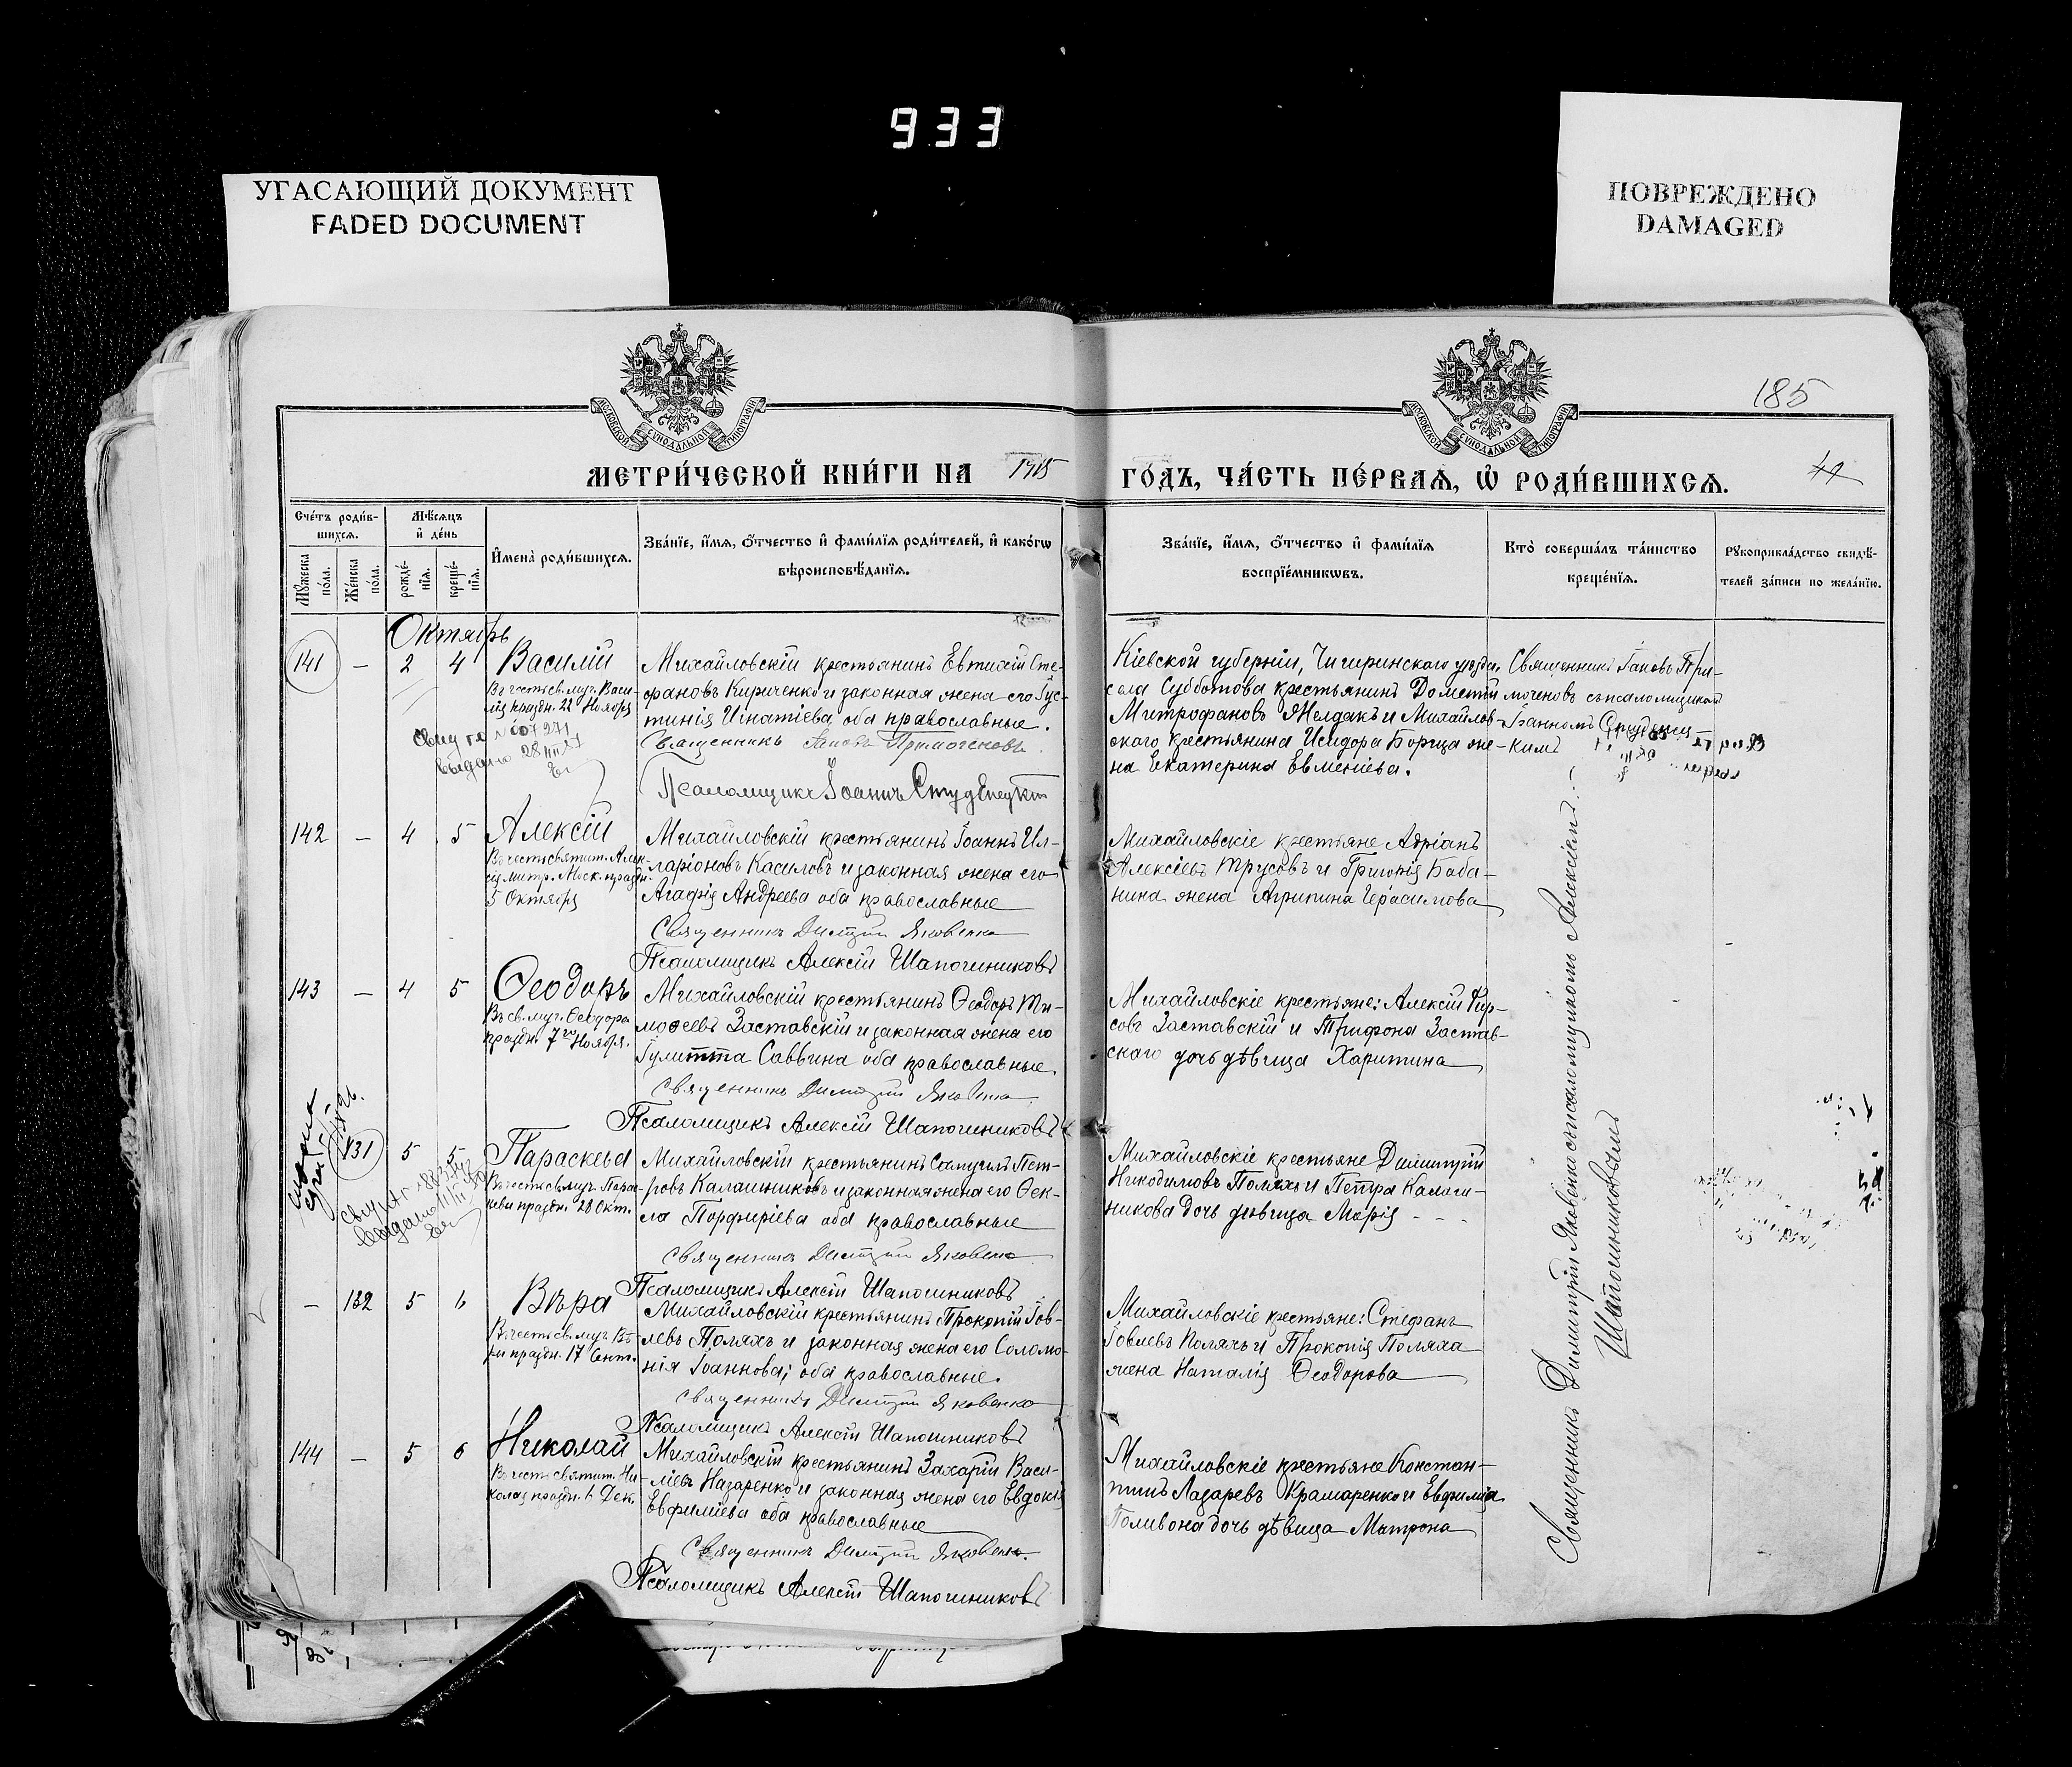 933
УГАСАЮЩИЙ ДОКУМЕНТ
FADED DOCUMENT
ПОВРЕЖДЕНО
DAMAGED
МОСКОВСКОЙ СѴНОДАЛЬНОЙ ТИПОГРАФІИ
МОСКОВСКОЙ СѴНОДАЛЬНОЙ ТИПОГРАФІИ
185
МЕТРИ́ЧЕСКОЙ КНИ́ГИ НА 1915 ГО́ДЪ, ЧА́СТЬ ПЕ́РВАѦ, Ѡ҆ РОДИ́ВШИХСѦ.
Сче́тъ роди́в-
шихсѧ.
Мꙋ́жеска по́ла.
Же́нска по́ла.
Мѣ́сѧцъ
и҆ де́нь
рожде́-
нїѧ.
креще́-
нїѧ.
И҆мена̀ роди́вшихсѧ.
Зва́нїе, и҆́мѧ, ѻ҆́тчество и҆ фами́лїѧ роди́телей, и҆ како́гѡ
вѣроисповѣ́данїѧ.
Зва́нїе, и҆́мѧ, ѻ҆́тчество и҆ фами́лїѧ
воспрїе́мникѡвъ.
Кто̀ соверша́лъ та́инство
креще́нїѧ.
Рꙋкоприкла́дство свидѣ́-
телей за́писи по жела́нїю.
Октябрь
141 — 2 4 Василій
Въ честь св. муч. Васи-
лія праздн. 22 Ноября
выдано 28
Михайловскій крестьянинъ Евтихій Сте-
фановъ Кириченко и законная жена его Іус-
тинія Игнатіева, оба православные.
Священникъ Іаковъ Примоченовъ
Псаломщикъ Іоаннъ Студенецкій
Кіевской губерніи, Чигиринскаго уѣзда,
села Субботова крестьянинъ Дометій
Митрофановъ Желдакъ и Михайлов-
скаго крестьянина Исидора Борща же-
на Екатерина Евменіева.
Священникъ Іаковъ При-
моченовъ съ псаломщикомъ
Іоанномъ Студенец-
кимъ
142 — 4 5 Алексій
Въ честь святит. Алек-
сія митр. Моск. праздн.
5 Октября
Михайловскій крестьянинъ Іоаннъ Ил-
ларіоновъ Касиловъ и законная жена его
Агафія Андреева оба православные
Священникъ Димитрій Яковенко
Псаломщикъ Алексій Шапошниковъ
Михайловскіе крестьяне Адріанъ
Алексіевъ Трусовъ и Григорія Баба-
нина жена Агрипина Герасимова
143 — 4 5 Ѳеодоръ
Въ св. муч. Ѳеодора
праздн. 7го Ноября.
Михайловскій крестьянинъ Ѳеодоръ Ти-
моѳеевъ Заставскій и законная жена его
Іулитта Саввина оба православные.
Священникъ Димитрій Яковенко
Псаломщикъ Алексій Шапошниковъ
Михайловскіе крестьяне: Алексій Фир-
совъ Заставскій и Трифона Застав-
скаго дочь дѣвица Харитина
131 5 5 Параскева
Въ честь св. муч. Парас-
кевы праздн. 28 Окт.
Михайловскій крестьянинъ Самуилъ Пет-
ровъ Калашниковъ и законная жена его Ѳек-
ла Порфиріева оба православные
Священникъ Димитрій Яковенко
Псаломщикъ Алексій Шапошниковъ
Михайловскіе крестьяне Димитрій
Никодимовъ Поляхъ и Петра Калаш-
никова дочь дѣвица Марія
— 132 5 6 Вѣра
Въ честь св. муч. Вѣ-
ры праздн. 17 Сент.
Михайловскій крестьянинъ Прокопій Іов-
левъ Поляхъ и законная жена его Соломо-
нія Іоаннова; оба православные.
Священникъ Димитрій Яковенко
Псаломщикъ Алексій Шапошниковъ
Михайловскіе крестьяне: Стефанъ
Іовлевъ Поляхъ и Прокопія Поляха
жена Наталія Ѳеодорова
144 — 5 6 Николай
Въ честь святит. Ни-
колая праздн. 6 Дек.
Михайловскій крестьянинъ Захарій Васи-
ліевъ Назаренко и законная жена его Евдокія
Евфиміева оба православные
Священникъ Димитрій Яковенко.
Псаломщикъ Алексій Шапошниковъ
Михайловскіе крестьяне Констан-
тинъ Лазаревъ Крамаренко и Евфимія
Поливона дочь дѣвица Матрона
Священникъ Димитрій Яковенко съ псаломщикомъ Алексіемъ
Шапошниковымъ